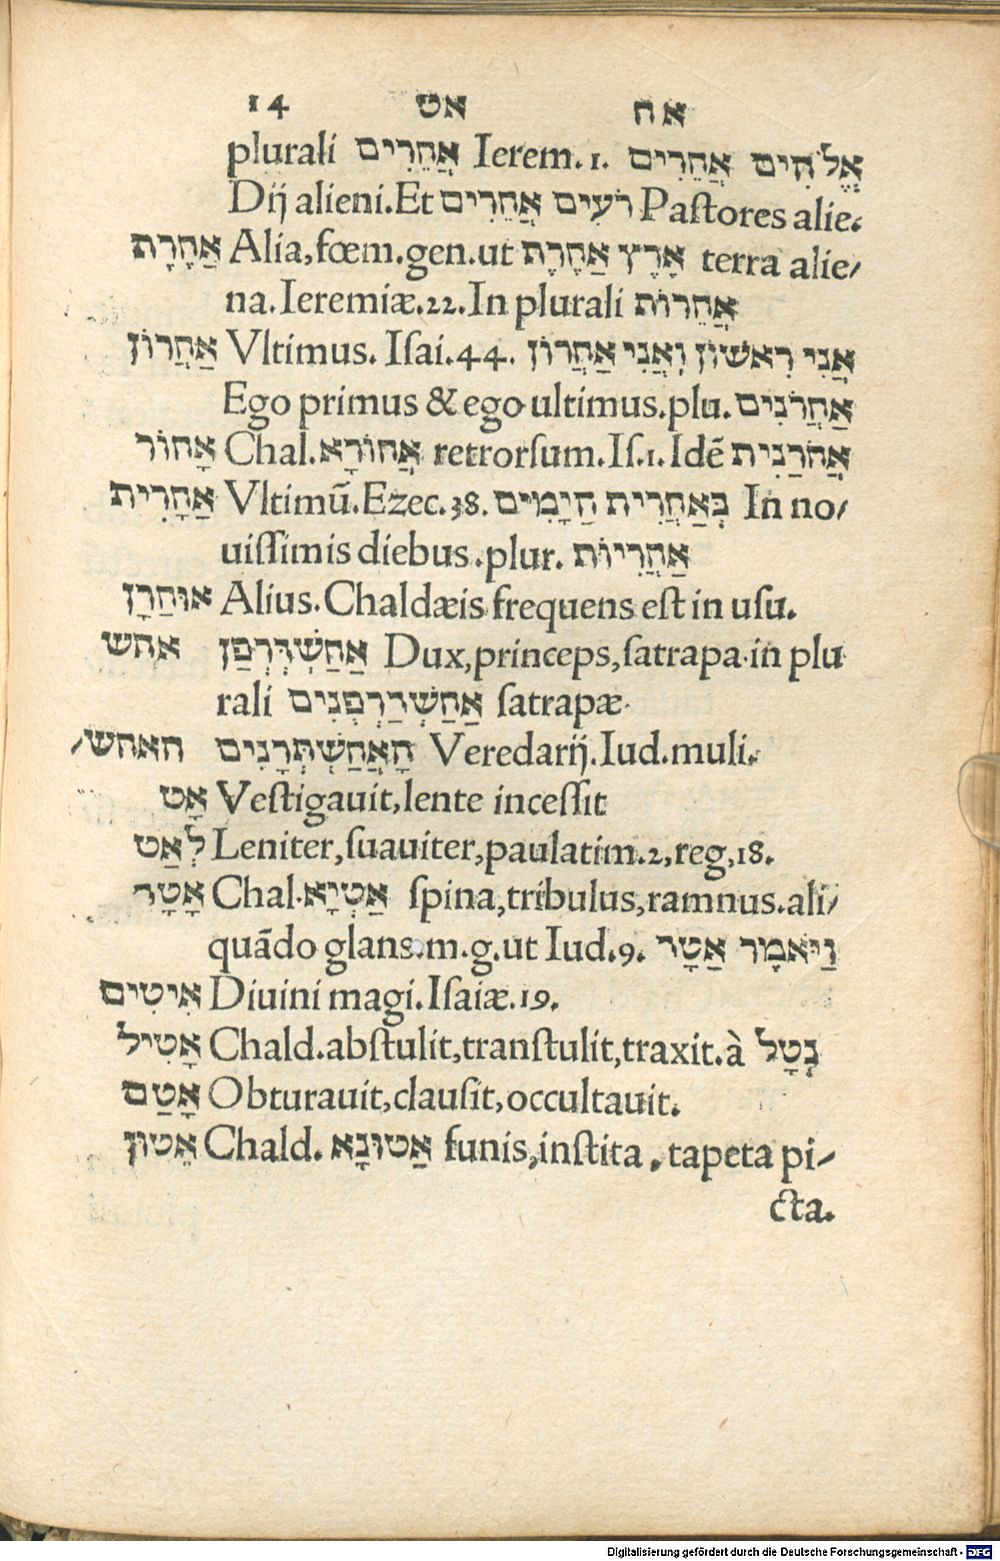 14 אט אח
plurali אֲחֵרִים Ierem.1. אֱלֹהִים אֲחֵרִים
Dij alieni.Et רֹעִים אֲחֵרִים Pastores alie.
אַחֶרֶת Alia,fœm.gen.ut אֶרֶץ אַחֶרֶת terra alie/
na.Ieremiæ.22.In plurali אֲחֵרוֹת
אַחֲרוֹן Vltimus. Isai.44. אֲנִי רִאשׁוֹן וַאֲנִי אַחֲרוֹן
Ego primus & ego ultimus.plu. אַחֲרֹנִים
אָחוֹר Chal.אֲחוֹרָא retrorsum.Is.1.Idē אֲחֹרַנִית
אַחָרִית Vltimū.Ezec.38. בְּאַחֲרִית הַיָמִים In no/
uissimis diebus.plur. אַחֲרִיוֹת
אוּחרָן Alius.Chaldæis frequens est in usu.
אחש אַחַשְׁדְּרְפַּן Dux,princeps,satrapa in plu
rali אַחַשְׁדַרְפְנִים satrapæ.
האחש/ הָאֲחַשְׁתְּרָנִים Veredarij.Iud.muli.
אָט Vestigauit,lente incessit
לְאַט Leniter,suauiter,paulatim.2,reg,18.
אָטָר Chal.אַטְיָא spina,tribulus,ramnus.ali/
quādo glans.m.g.ut Iud.9. וַיֹּאמֶר אַטָר
אִיטִים Diuini magi.Isaiæ.19.
אָטִיל Chald.abstulit,transtulit,traxit.à נְטָל
אָטַם Obturauit,clausit,occultauit.
אֵטוּן Chald. אַטוּנָא funis,instita, tapeta pi/
cta.
Digitalisierung gefördert durch die Deutsche Forschungsgemeinschaft - DFG